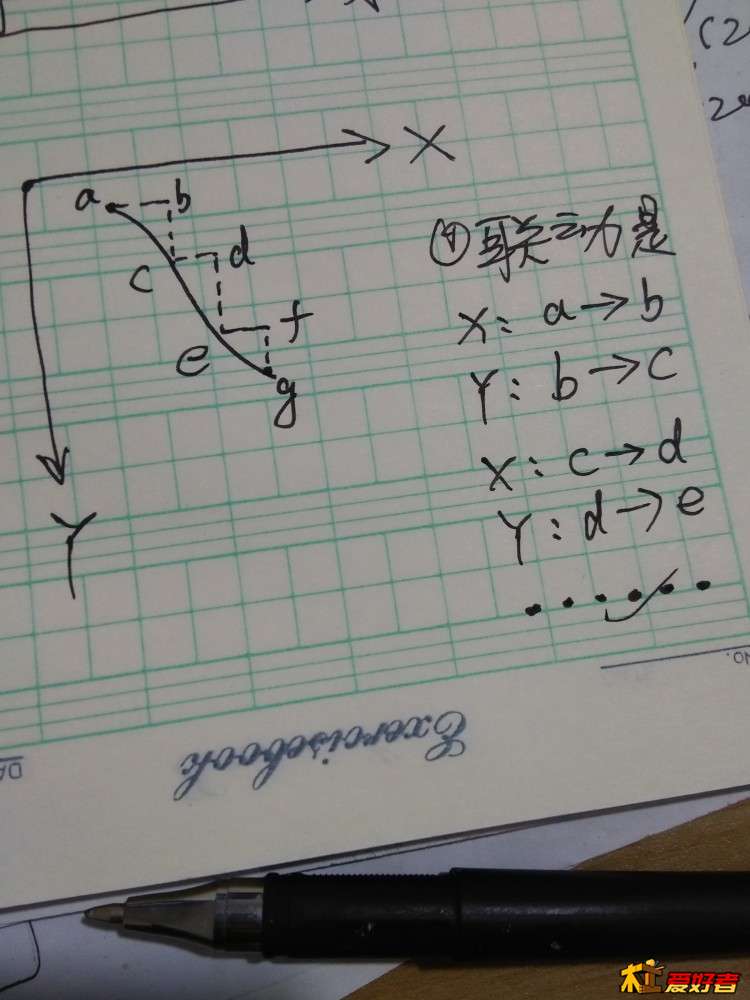 X
a
b
c
d
e
f
g
Y
④联动是
X: a→b
Y: b→c
X: c→d
Y: d→e
......
NO.
Exercisebook
DA
爱好者